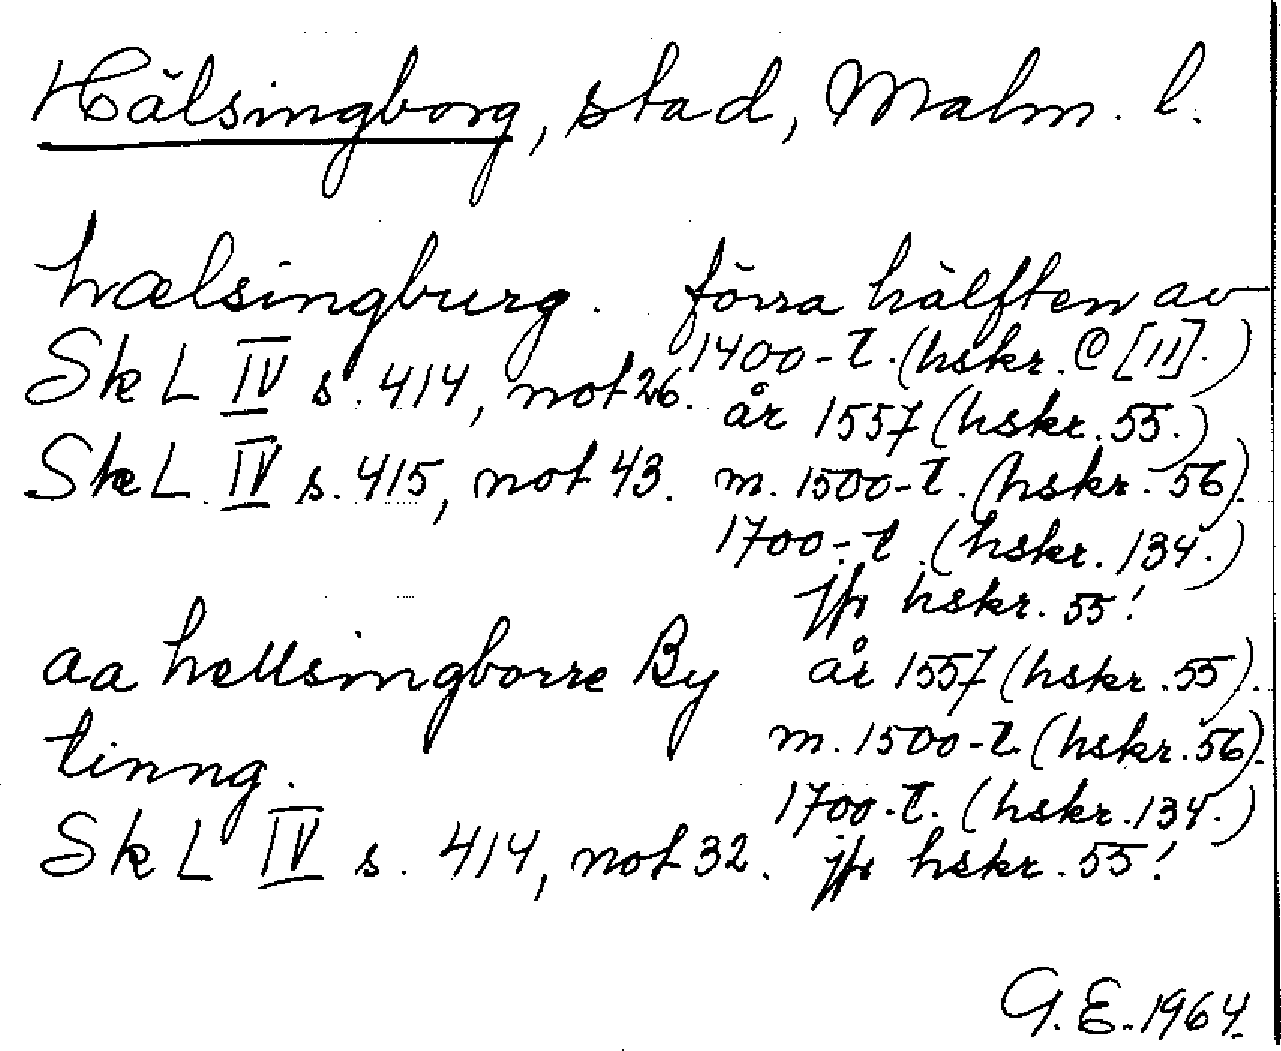 Hälsingborg, stad, Malm. l.
hælsingburg. förra hälften av
Sk L IV s. 414, not 26. 1400-t. (hskr. C [11].)
år 1557 (hskr. 55.)
Sk L IV s. 415, not 43. m. 1500-t. (hskr. 56).
1700-t. (hskr. 134.)
jfr hskr. 55!
aa hellsingborre By år 1557 (hskr. 55).
tinng. m. 1500-t. (hskr. 56).
1700-t. (hskr. 134.)
Sk L IV s. 414, not 32. jfr hskr. 55!
G. E. 1964.